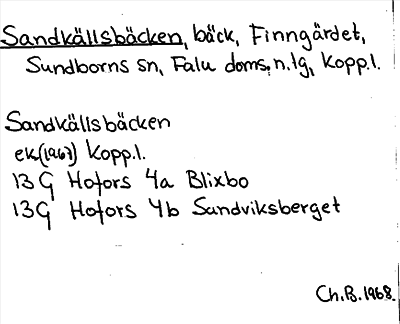 Sandkällsbäcken, bäck, Finngärdet,
Sundborns sn, Falu doms. n. lg, Kopp.l.
Sandkällsbäcken
ek(1967) Kopp.l.
13 G Hofors 4a Blixbo
13G Hofors 4b Sandviksberget
Ch.B. 1968.